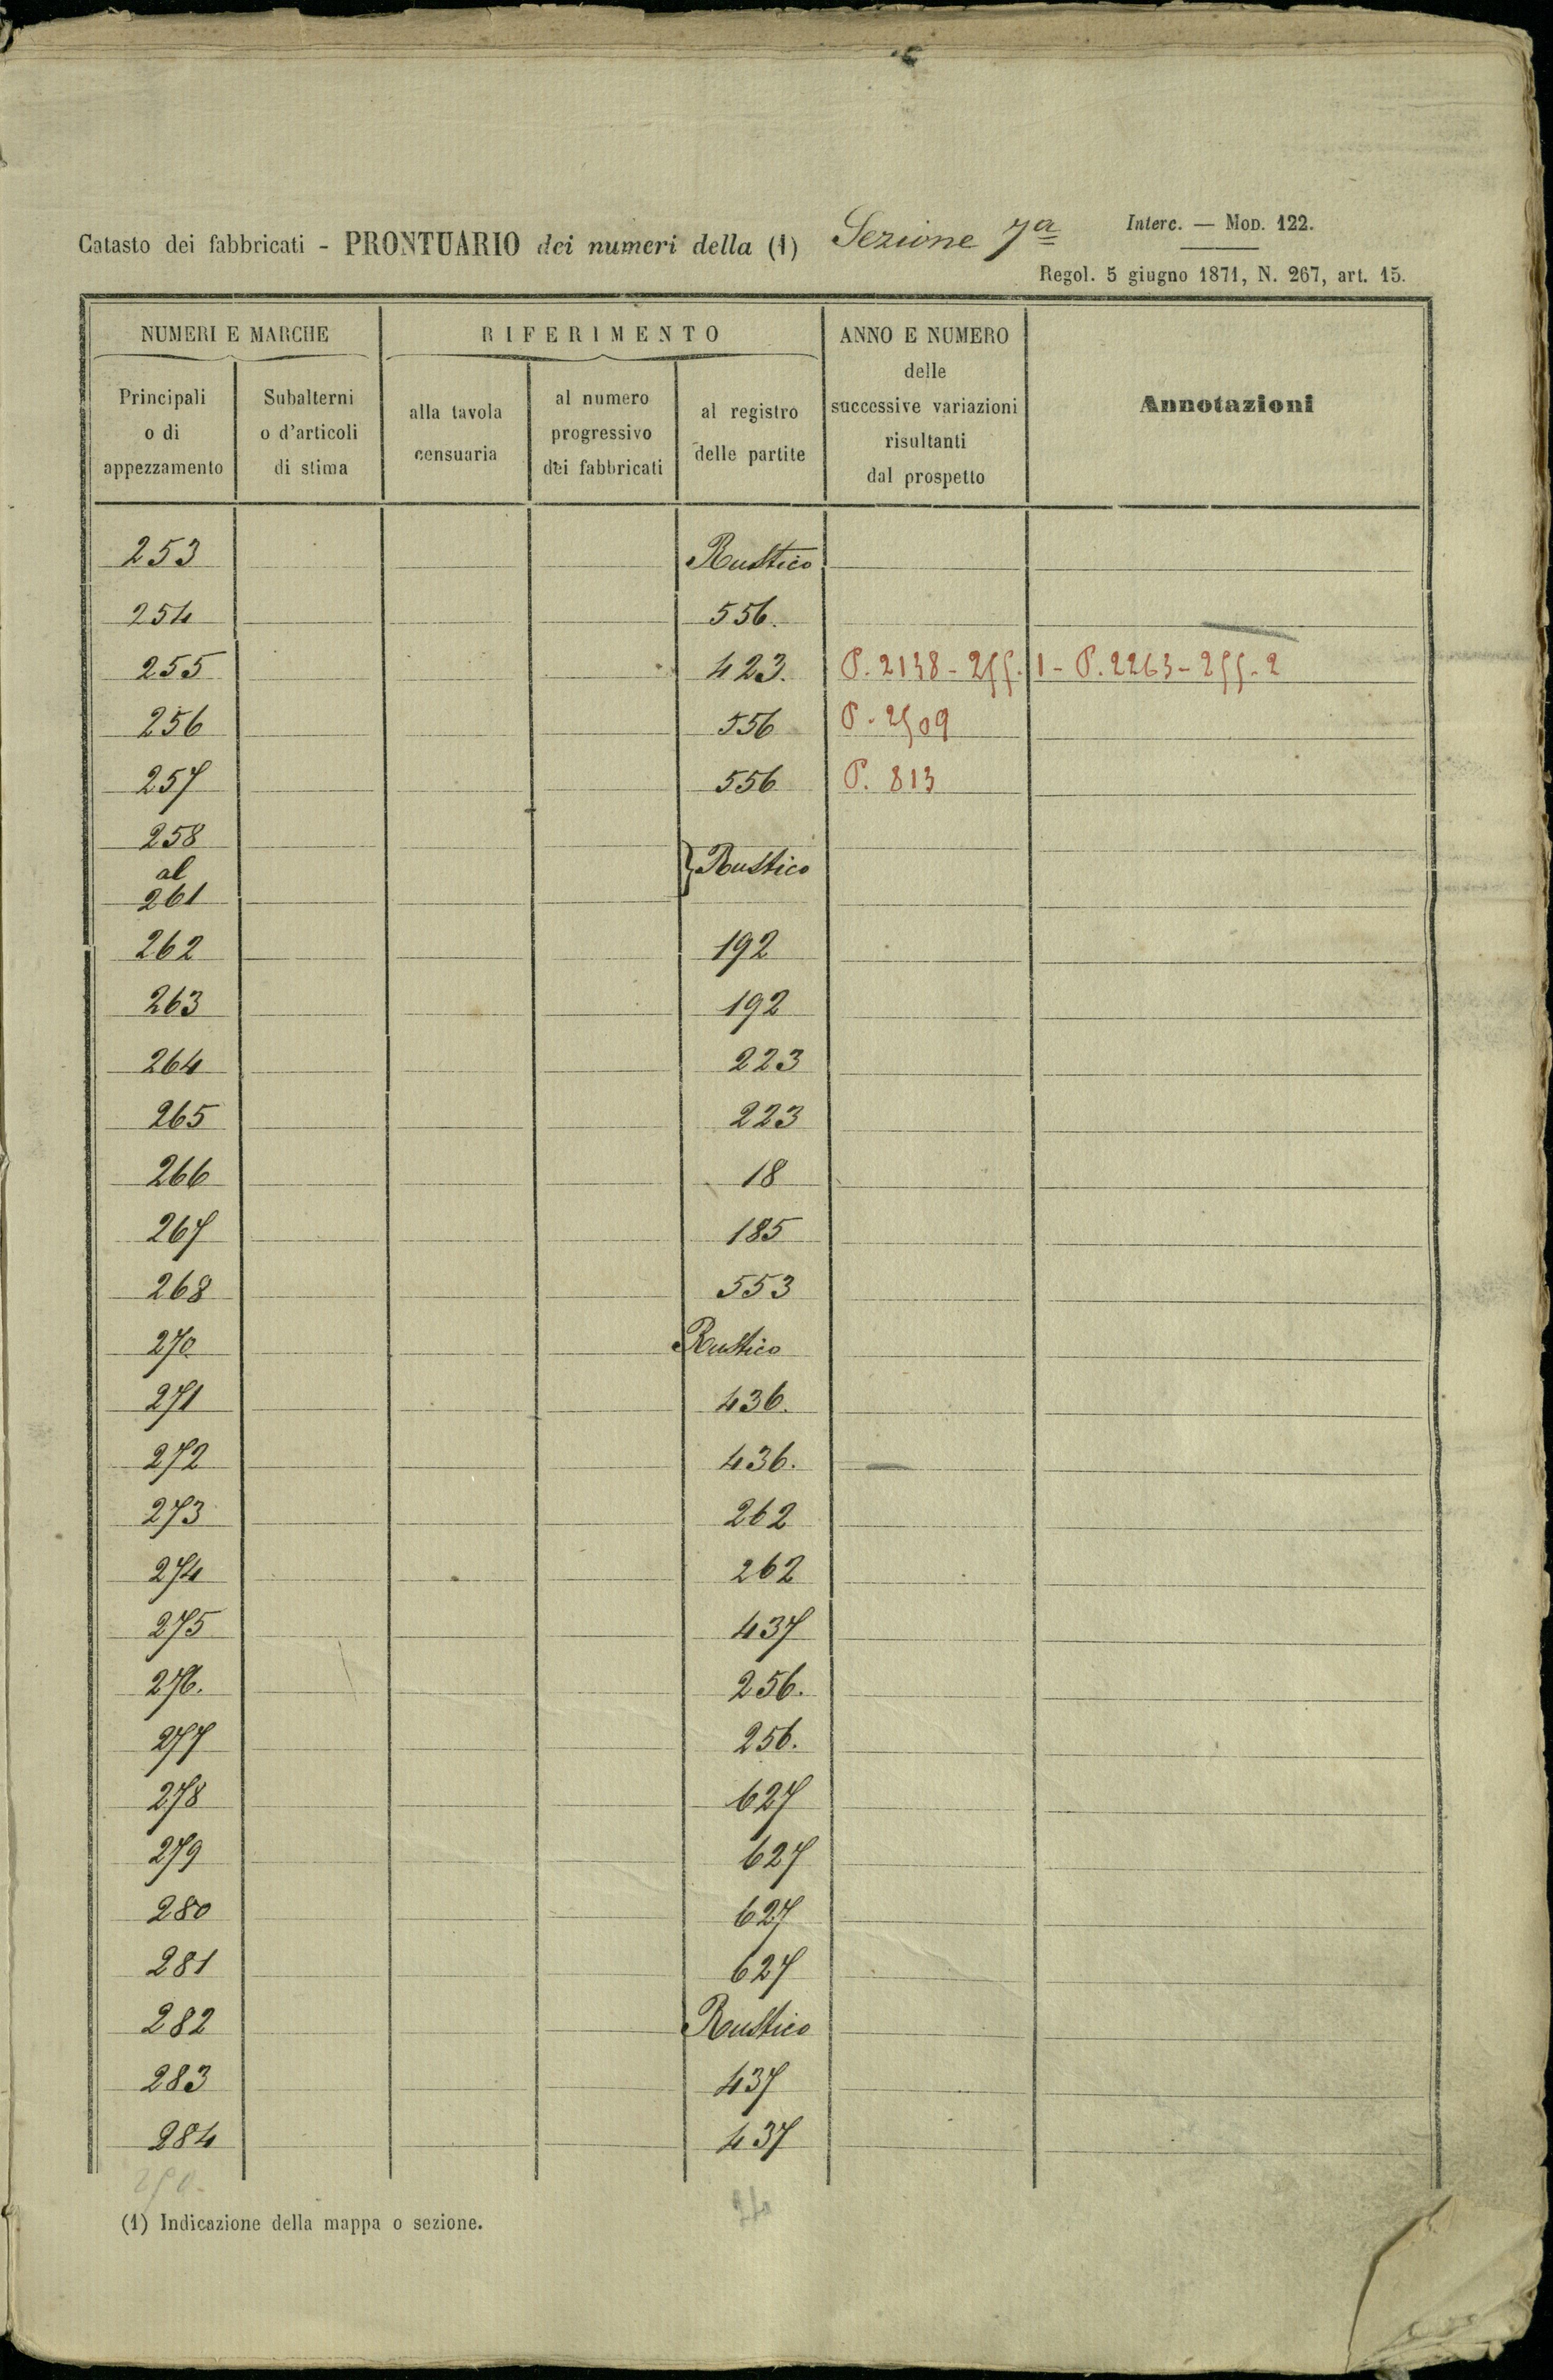 Interc. — Mod. 122.
Catasto dei fabbricati - PRONTUARIO dei numeri della (1) Sezione 7ª
Regol. 5 giugno 1871, N. 267, art. 15.
NUMERI E MARCHE RIFERIMENTO ANNO E NUMERO delle successive variazioni risultanti dal prospetto Annotazioni
Principali o di appezzamento
Subalterni o d'articoli di stima
alla tavola censuaria
al numero progressivo dei fabbricati
al registro delle partite
253 Rustico
254 556.
255 423. P. 2138 - 255. 1 - P. 2263 - 255. 2
256 556 P. 2509
257 556 P. 813
258
al } Rustico
261
262 192
263 192
264 223
265 223
266 18
267 185
268 553
270 Rustico
271 436.
272 436.
273 262
274 262
275 437
276. 256.
277 256.
278 627
279 627
280 627
281 627
282 Rustico
283 437
284 437
(1) Indicazione della mappa o sezione.